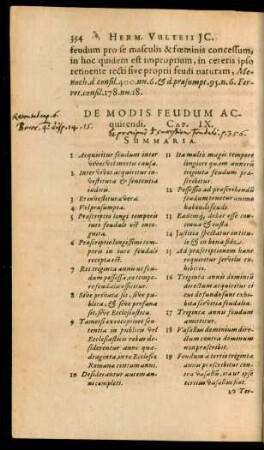 354 HERM. VVLTEII JC.
feudum pro se masculis & fœminis concessum,
in hoc quidem est improprium, in ceteris ipso
retinente recti sive proprii feudi naturam, Me-
noch. d. consil. 400. nn. 6. & d. præsumpt. 95. n. 6. Fer-
ret. consil. 178. nn. 18.
DE MODIS FEUDUM AC-
quirendi. CAP. IX.
SUMMARIA.
1 Acquiritur feudum inter
vivos vel mortis causa.
2 Inter vivos acquiritur in-
vestitura & sententia
iudicis.
3 Et investitura vera.
4 Vel præsumpta.
5 Præscriptio longi tempo-
ris iure feudali est in-
cognita.
6 Præscriptio longissimi tem-
poris in iure feudali
recepta est.
7 Res triginta annis ut feu-
dum possessa, eo tempo-
re feudalis efficitur.
8 Sive privata sit, sive pu-
blica, & sive profana
sit, sive Ecclesiastica.
9 Tametsi ex receptiori sen-
tentia in publicis vel
Ecclesiasticis rebus de-
siderentur anni qua-
draginta, in re Ecclesiæ
Romanæ centum anni.
10 Desiderantur autem an-
ni completi.
11 Ita multis magis tempore
longiori quam annorum
triginta feudum acqui-
ritur.
12 Possessio ad præscribendum
feudum tempore necessa-
ria, debet esse continua.
13 Eademq́; debet esse com-
munis & iusta.
14 Iustitia spectatur in titu-
lo & in bona fide.
15 Ad præscriptionem hanc
requiritur servitiorum
exhibitio.
16 Triginta annis dominii
directum acquiritur ad-
versus eum, qui eo tem-
pore alii tanquam do-
mino servitia feudalia
exhibuit.
17 Triginta annis feudum
amittitur.
18 Vasallus dominium dire-
ctum contra dominum
non præscribit.
19 Feudum a tertio triginta
annis præscribitur con-
tra vasallum, etiamsi ter-
tius is non sit
vasallus.
20 Ter-